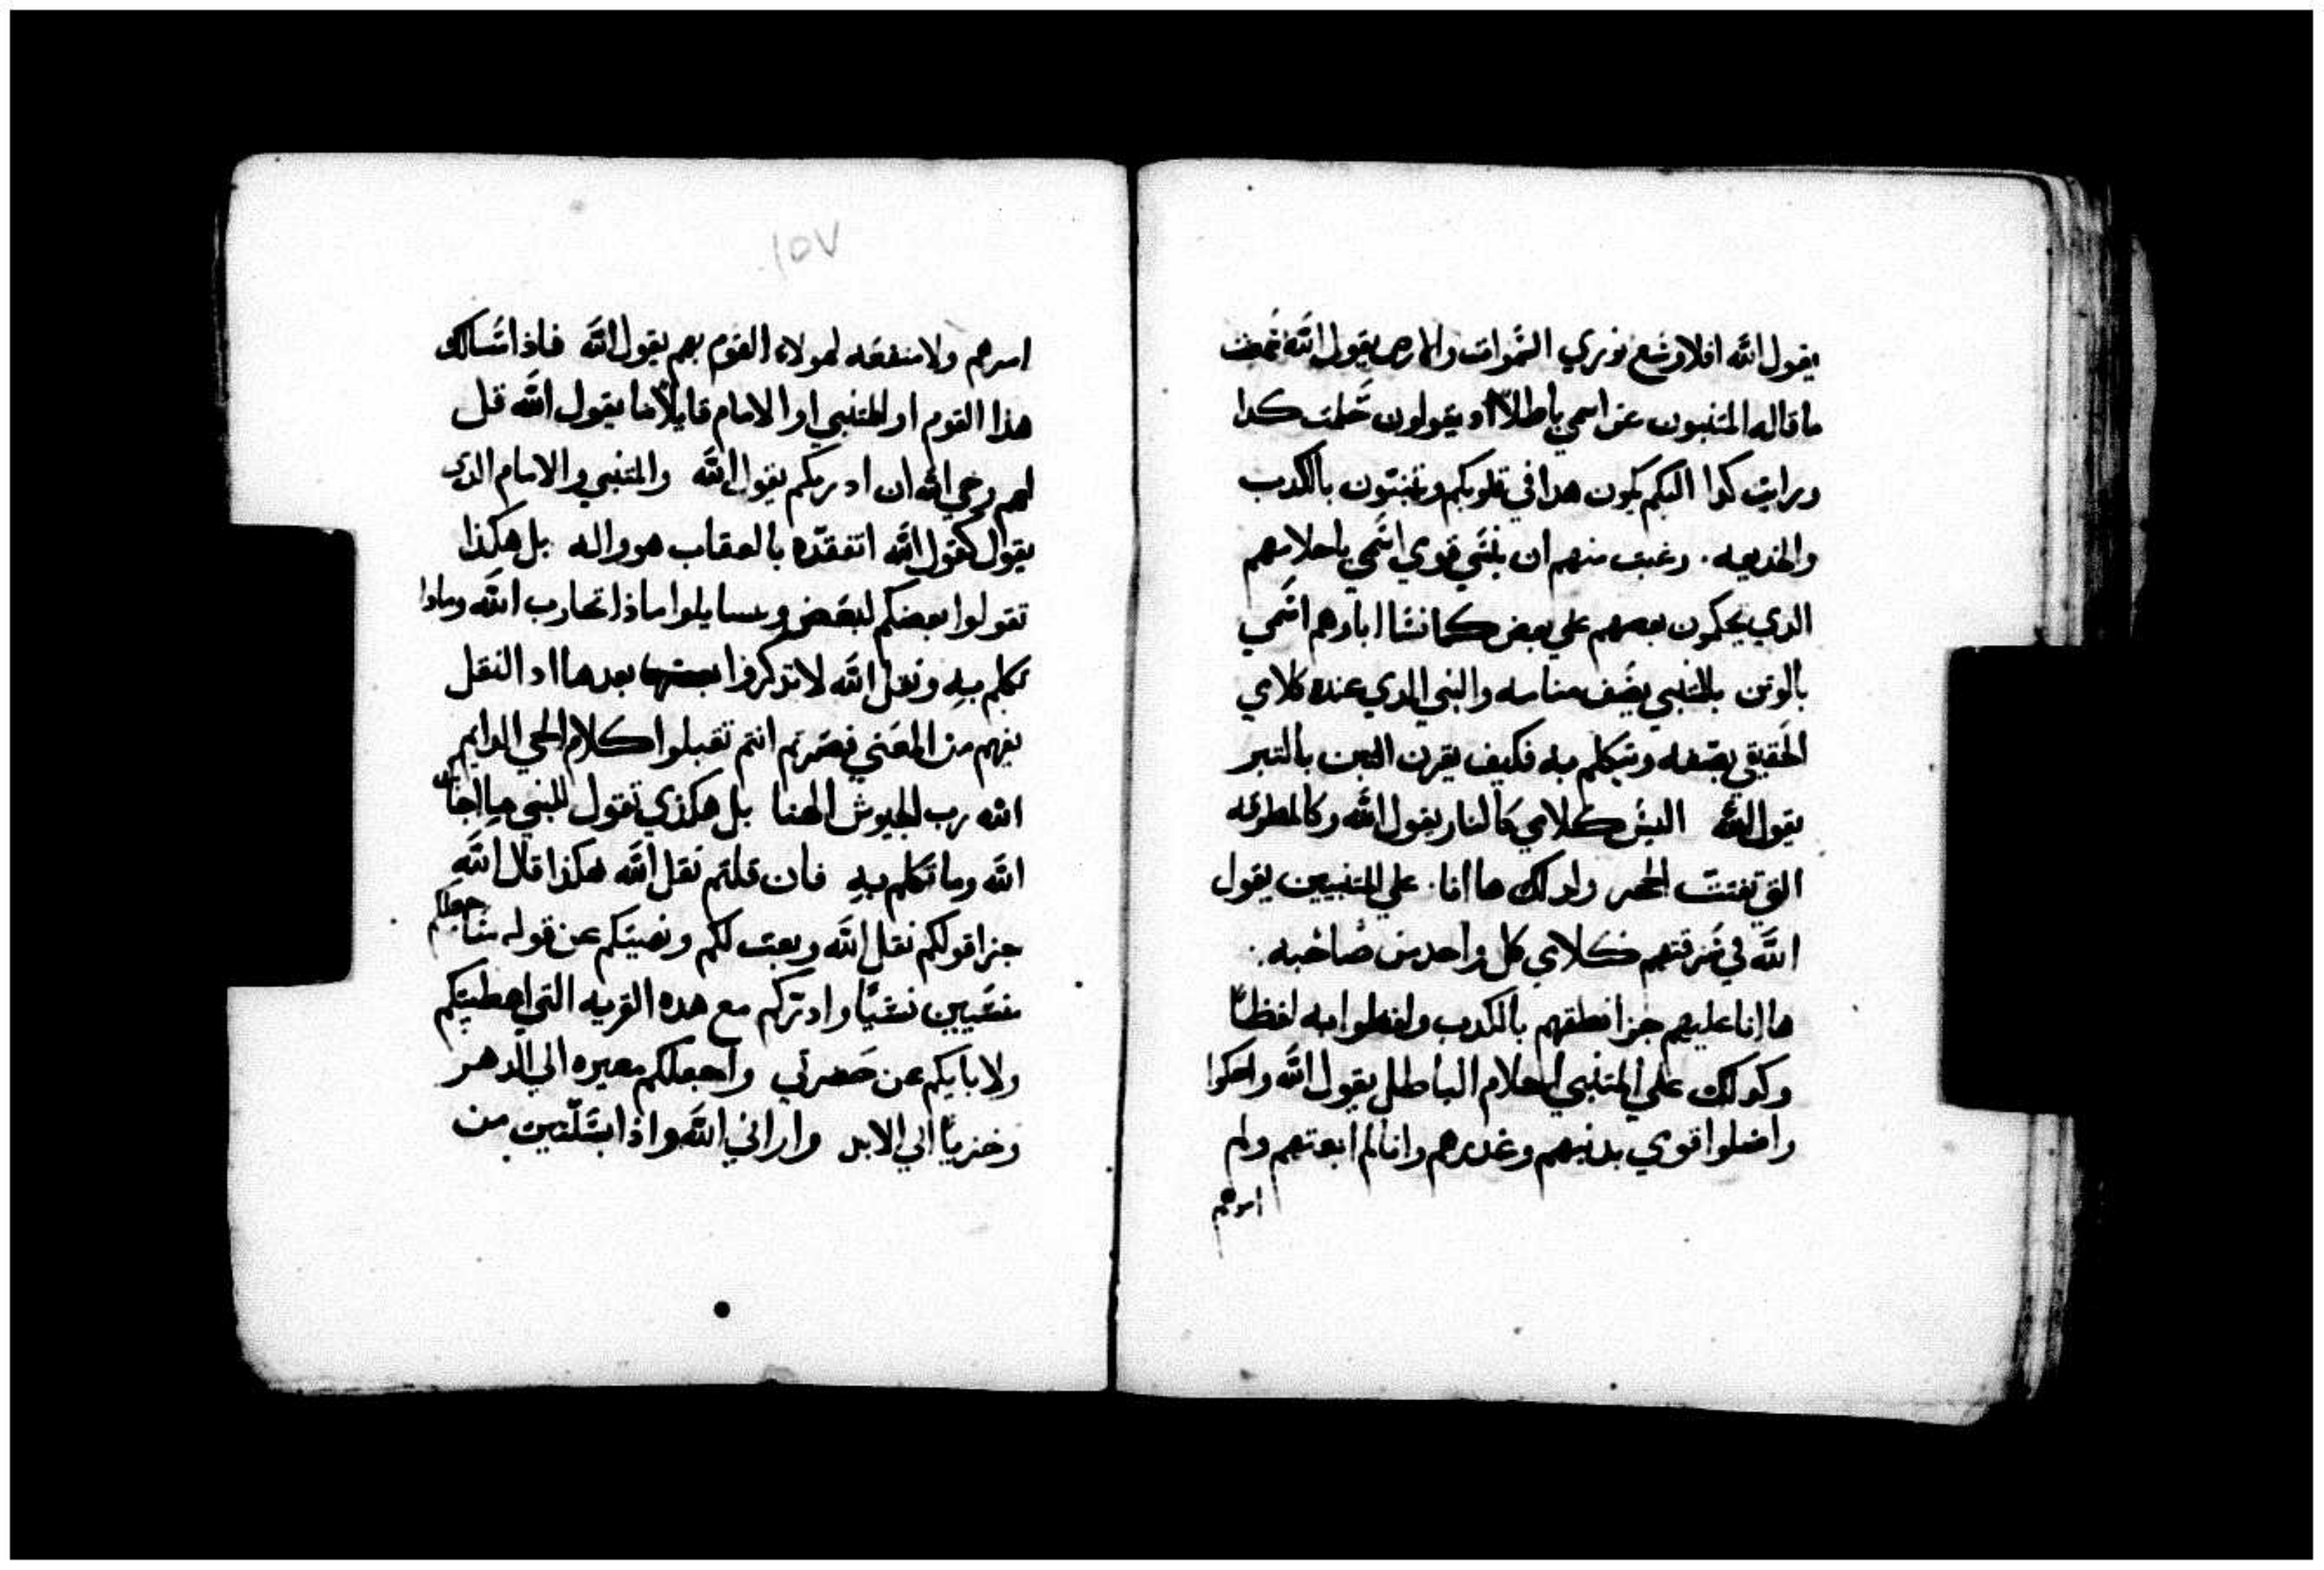 يقول الله افلا وسع نوري السموات والارض يقول الله سمعت
ما قاله المتنبيون عن اسمي باطلاً او يقولون حلمت كدا
ورايت كدا اليكم يكون هدا في قلوبكم وتنبتون بالكدب
والخديعه. رغبت منهم ان ينسي قومي اسمي باحلامهم
الدي يحكون بعضهم علي بعض كما نشا اباوهم اسمي
بالوتن بالمتنبي يصف منامه والنبي الدي عنده كلامي
الحقيقي يصفه ويتكلم به فكيف يقرن التبن بالتبر
يقول الله اليس كلامي كالنار يقول الله وكالمطرقه
التي تفتت الحجر ولدلك ها انا. علي المتنبيين يقول
الله في سرقتهم كلامي كل واحد من صاحبه.
ها انا عليهم جزا نطقهم بالكدب ولفظوا به لفظاً
وكدلك علي المتنبي احلام الباطل يقول الله واحكوا
واضلوا قومي بدنبهم وغدرهم وانا لم ابعتهم ولم
امرهم
١٥٧
امرهم ولا منفعه لهولاء القوم بهم يقول الله فاذا سالك
هذا القوم او المتنبي او الامام قايلاً ما يقول الله قل
لهم وحي الله ان ادبركم يقول الله والمتنبي والامام الدي
يقول كقول الله اتفقده بالعقاب هو واله بل هكذا
تقولوا بعضكم لبعض وتسايلوا ماذا تجارب الله وماذا
تكلم به ونقل الله لا تذكروا بعدها اد النقل
يفهم من المعني فصرتم انتم تقبلوا كلام الحي الدايم
الله رب الجيوش الهنا بل هكذي تقول للنبي ما اجابك
الله وما تكلم به فان قلتم نقل الله هكذا قال الله
جزا قولكم نقل الله وبعت لكم ونهيتكم عن قوله ساجعلكم
منسيين نسياً واترككم مع هده القريه التي اعطيتكم
ولابايكم عن حضرتي واجعلكم معيره الي الدهر
وخزياً الي الابد واراني الله واذا بسلتين من